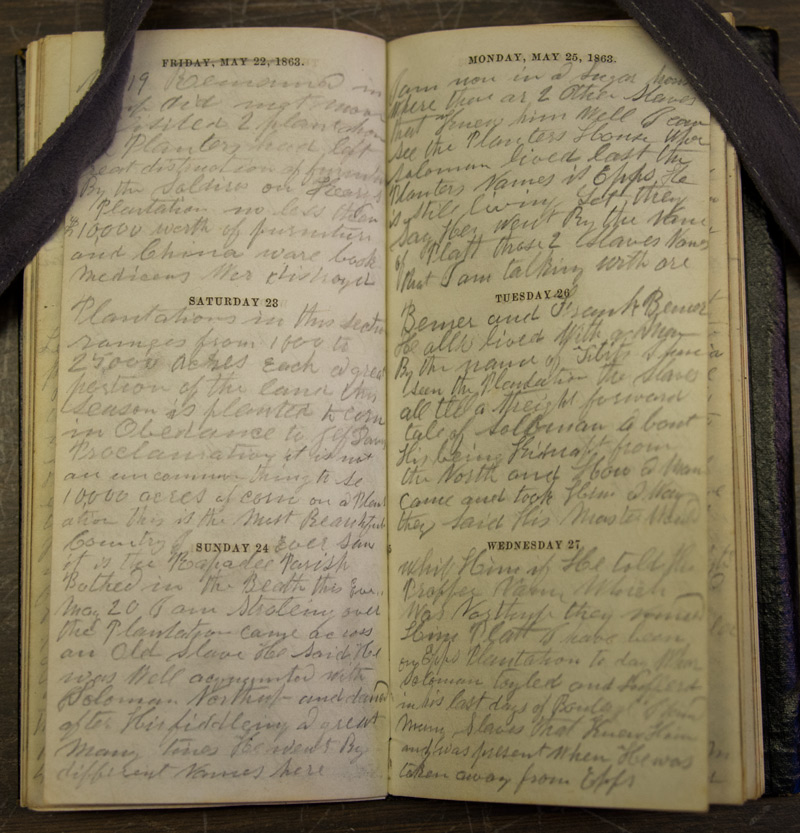 FRIDAY, MAY 22, 1863.
19 Remained in
did not move
visited 2 plantation
Planters had left
great distruction of furniture
By the Soldiers on Pearces
Plantation no less then
$10,000 worth of furniture
and China ware book
Medicens Wer distroyed
SATURDAY 23
Plantations in this section
rainges from 1000 to
25,000 Acres Each a great
portion of the land this
Season is planted to corn
in Obedance to Jef Davis
Proclamation it is not
an uncommon thing to se
10000 acres of corn on a Plant
ation this is the Most Beautiful
Country I Ever Saw
SUNDAY 24
it is the Rapadee Parish
Bathed in the
May 20 I am Stroleing over
the Plantation came across
an Old Slave He Said He
was Well acquainted with
Soloman Northup and danced
after His fiddleing a great
Many times He went By
different Names here
MONDAY, MAY 25, 1863.
I am now in a Sugar house
where there ar 2 Other Slaves
that Knew him Well I can
See the Planters House Wher
Soloman lived last the
Planters Names is Epps He
is Still living Yet they
Say He went By the Name
of Platt those 2 Slaves Names
that I am talking with are
TUESDAY 26
and Frank
He allso lived With a Man
By the name of Tibits I
Seen the Plantation the Slaves
all tell a Streight forward
tale of Soloman about
His being Kidnapt from
the North and How a Man
came and took Him a Way
they Said His Master Would
WEDNESDAY 27
whip Him if He told His
Propper Name Which
Was Northup they
Him Platt I have been
on Epps Plantation to day Wher
Soloman toyled and Suffered
in his last days of Bondage I Seen
Many Slaves that Knew Him
and was present When He was
taken away from Epps